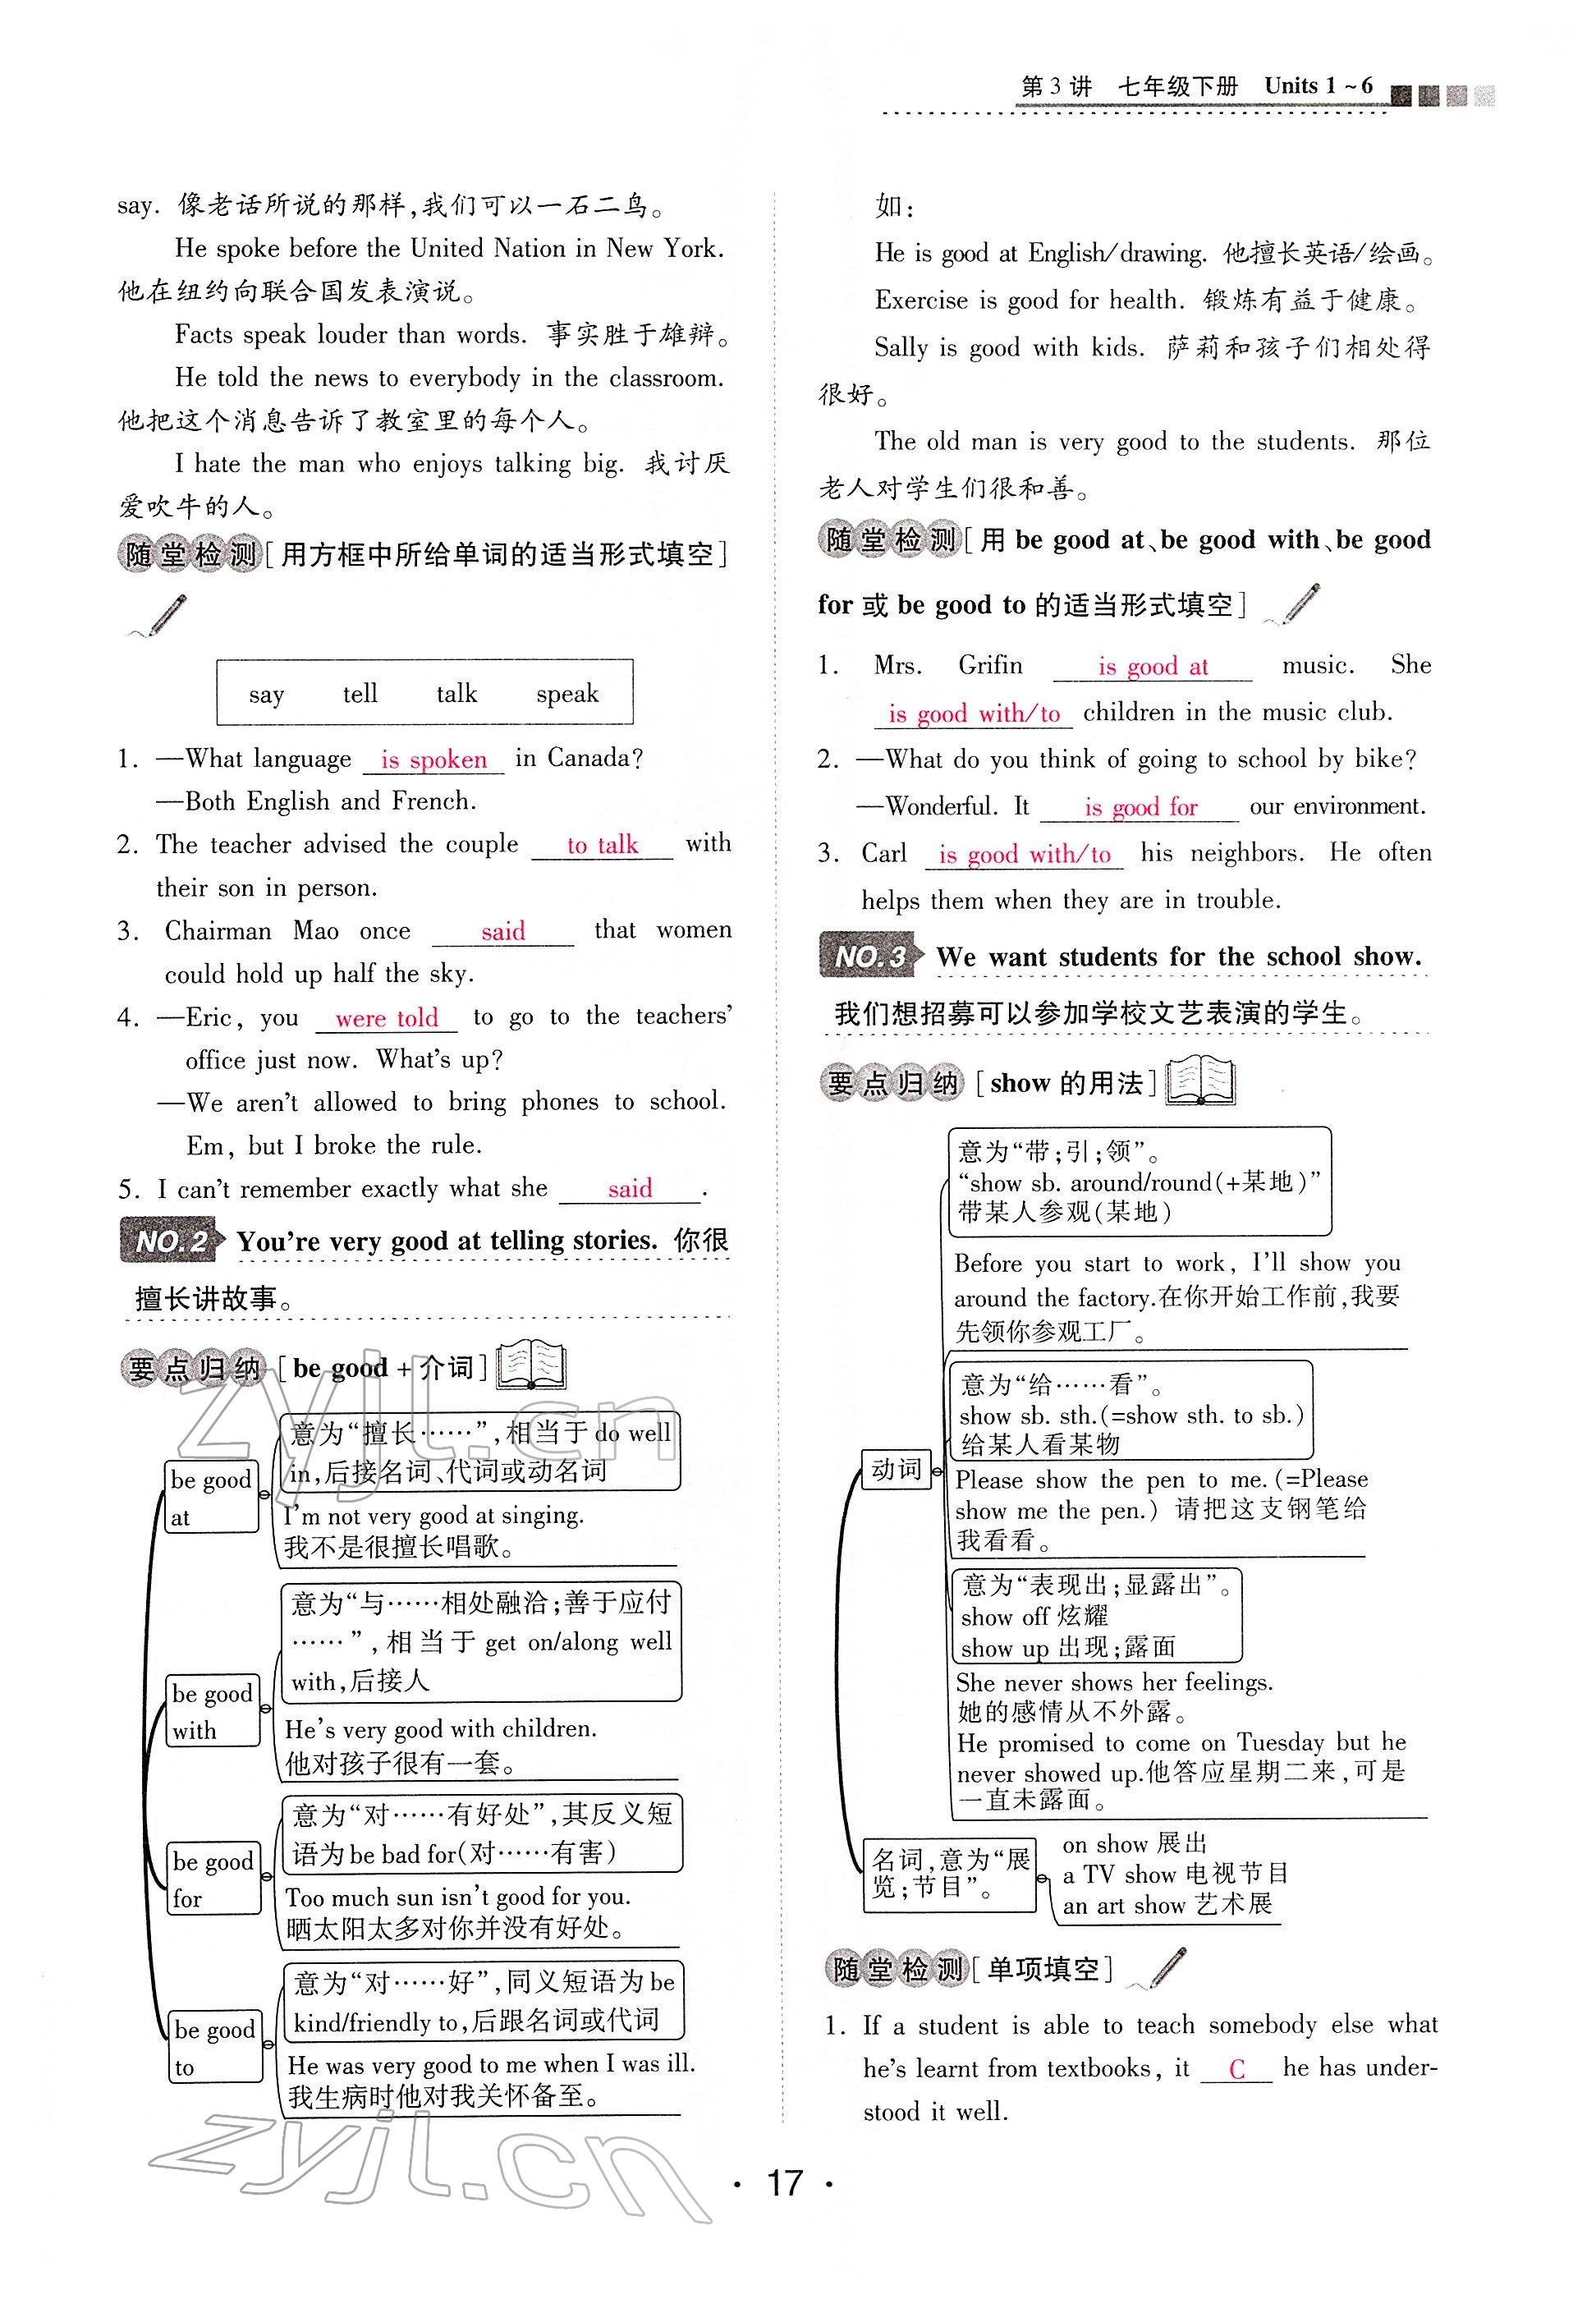 第 3 讲 七年级下册 Units 1 ~ 6
say. 像老话所说的那样,我们可以一石二鸟。
He spoke before the United Nation in New York.
他在纽约向联合国发表演说。
Facts speak louder than words. 事实胜于雄辩。
He told the news to everybody in the classroom.
他把这个消息告诉了教室里的每个人。
I hate the man who enjoys talking big. 我讨厌
爱吹牛的人。
随堂检测[用方框中所给单词的适当形式填空]
say tell talk speak
1. —What language is spoken in Canada?
—Both English and French.
2. The teacher advised the couple to talk with
their son in person.
3. Chairman Mao once said that women
could hold up half the sky.
4. —Eric, you were told to go to the teachers'
office just now. What's up?
—We aren't allowed to bring phones to school.
Em, but I broke the rule.
5. I can't remember exactly what she said.
NO.2 You're very good at telling stories. 你很
擅长讲故事。
要点归纳 [be good + 介词]
be good
at
意为“擅长……”,相当于 do well
in,后接名词、代词或动名词
I'm not very good at singing.
我不是很擅长唱歌。
be good
with
意为“与……相处融洽;善于应付
……”,相当于 get on/along well
with,后接人
He's very good with children.
他对孩子很有一套。
be good
for
意为“对……有好处”,其反义短
语为 be bad for(对……有害)
Too much sun isn't good for you.
晒太阳太多对你并没有好处。
be good
to
意为“对……好”,同义短语为 be
kind/friendly to,后跟名词或代词
He was very good to me when I was ill.
我生病时他对我关怀备至。
如:
He is good at English/drawing. 他擅长英语/绘画。
Exercise is good for health. 锻炼有益于健康。
Sally is good with kids. 萨莉和孩子们相处得
很好。
The old man is very good to the students. 那位
老人对学生们很和善。
随堂检测[用 be good at、be good with、be good
for 或 be good to 的适当形式填空]
1. Mrs. Grifin is good at music. She
is good with/to children in the music club.
2. —What do you think of going to school by bike?
—Wonderful. It is good for our environment.
3. Carl is good with/to his neighbors. He often
helps them when they are in trouble.
NO.3 We want students for the school show.
我们想招募可以参加学校文艺表演的学生。
要点归纳 [show 的用法]
动词
意为“带;引;领”。
“show sb. around/round(+某地)”
带某人参观(某地)
Before you start to work, I'll show you
around the factory.在你开始工作前,我要
先领你参观工厂。
意为“给……看”。
show sb. sth.(=show sth. to sb.)
给某人看某物
Please show the pen to me.(=Please
show me the pen.) 请把这支钢笔给
我看看。
意为“表现出;显露出”。
show off 炫耀
show up 出现;露面
She never shows her feelings.
她的感情从不外露。
He promised to come on Tuesday but he
never showed up.他答应星期二来,可是
一直未露面。
名词,意为“展
览;节目”。
on show 展出
a TV show 电视节目
an art show 艺术展
随堂检测[单项填空]
1. If a student is able to teach somebody else what
he's learnt from textbooks, it C he has under-
stood it well.
· 17 ·
zyjl.cn
zyjl.cn